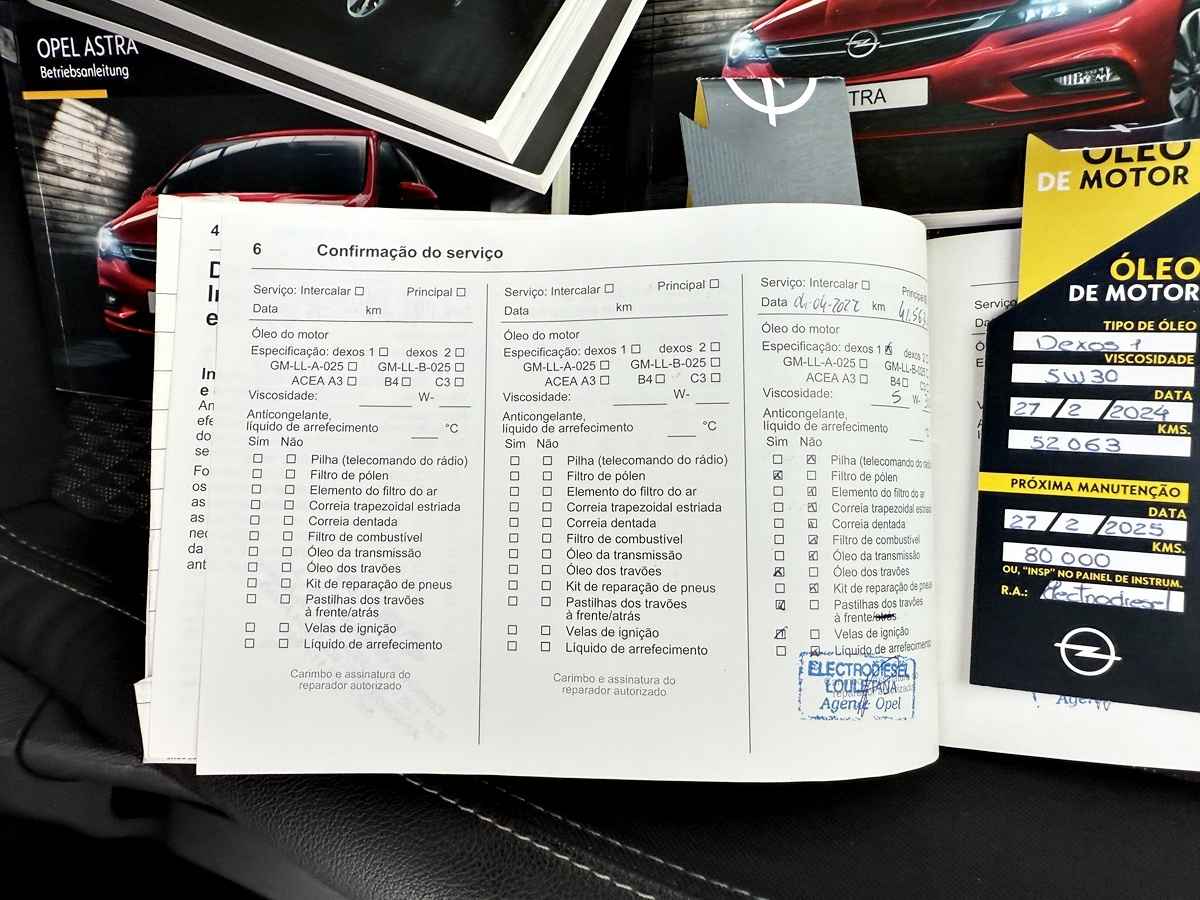 OPEL ASTRA
Betriebsanleitung
TRA
4
6 Confirmação do serviço
Serviço: Intercalar ☐ Principal ☐
Data km
Óleo do motor
Especificação: dexos 1 ☐ dexos 2 ☐
GM-LL-A-025 ☐ GM-LL-B-025 ☐
ACEA A3 ☐ B4 ☐ C3 ☐
Viscosidade: ____ W- ____
Anticongelante,
líquido de arrefecimento ____ °C
Sim Não
☐ ☐ Pilha (telecomando do rádio)
☐ ☐ Filtro de pólen
☐ ☐ Elemento do filtro do ar
☐ ☐ Correia trapezoidal estriada
☐ ☐ Correia dentada
☐ ☐ Filtro de combustível
☐ ☐ Óleo da transmissão
☐ ☐ Óleo dos travões
☐ ☐ Kit de reparação de pneus
☐ ☐ Pastilhas dos travões
à frente/atrás
☐ ☐ Velas de ignição
☐ ☐ Líquido de arrefecimento
Carimbo e assinatura do
reparador autorizado
Serviço: Intercalar ☐ Principal ☐
Data km
Óleo do motor
Especificação: dexos 1 ☐ dexos 2 ☐
GM-LL-A-025 ☐ GM-LL-B-025 ☐
ACEA A3 ☐ B4 ☐ C3 ☐
Viscosidade: ____ W- ____
Anticongelante,
líquido de arrefecimento ____ °C
Sim Não
☐ ☐ Pilha (telecomando do rádio)
☐ ☐ Filtro de pólen
☐ ☐ Elemento do filtro do ar
☐ ☐ Correia trapezoidal estriada
☐ ☐ Correia dentada
☐ ☐ Filtro de combustível
☐ ☐ Óleo da transmissão
☐ ☐ Óleo dos travões
☐ ☐ Kit de reparação de pneus
☐ ☐ Pastilhas dos travões
à frente/atrás
☐ ☐ Velas de ignição
☐ ☐ Líquido de arrefecimento
Carimbo e assinatura do
reparador autorizado
Serviço: Intercalar ☐ Principal
Data 04-2022 km 41.563
Óleo do motor
Especificação: dexos 1 ☒ dexos 2
GM-LL-A-025 ☐ GM-LL-B-025
ACEA A3 ☐ B4 ☐ C3
Viscosidade: 5 W-
Anticongelante,
líquido de arrefecimento ____ °C
Sim Não
☐ ☒ Pilha (telecomando do rádio
☒ ☐ Filtro de pólen
☐ ☒ Elemento do filtro do ar
☐ ☒ Correia trapezoidal estriada
☐ ☒ Correia dentada
☐ ☒ Filtro de combustível
☐ ☒ Óleo da transmissão
☒ ☐ Óleo dos travões
☐ ☒ Kit de reparação de pneus
☒ ☐ Pastilhas dos travões
à frente/atrás
☒ ☐ Velas de ignição
☐ ☒ Líquido de arrefecimento
Carimbo e assinatura do
reparador autorizado
ELECTRODIESEL
LOULETANA
Agente Opel
Serviço
Data
ÓLEO
DE MOTOR
ÓLEO
DE MOTOR
TIPO DE ÓLEO
Dexos 1
VISCOSIDADE
5W30
DATA
27/2/2024
KMS.
52 063
PRÓXIMA MANUTENÇÃO
DATA
27/2/2025
KMS.
80 000
OU, "INSP" NO PAINEL DE INSTRUM.
R.A.: Electrodiesel